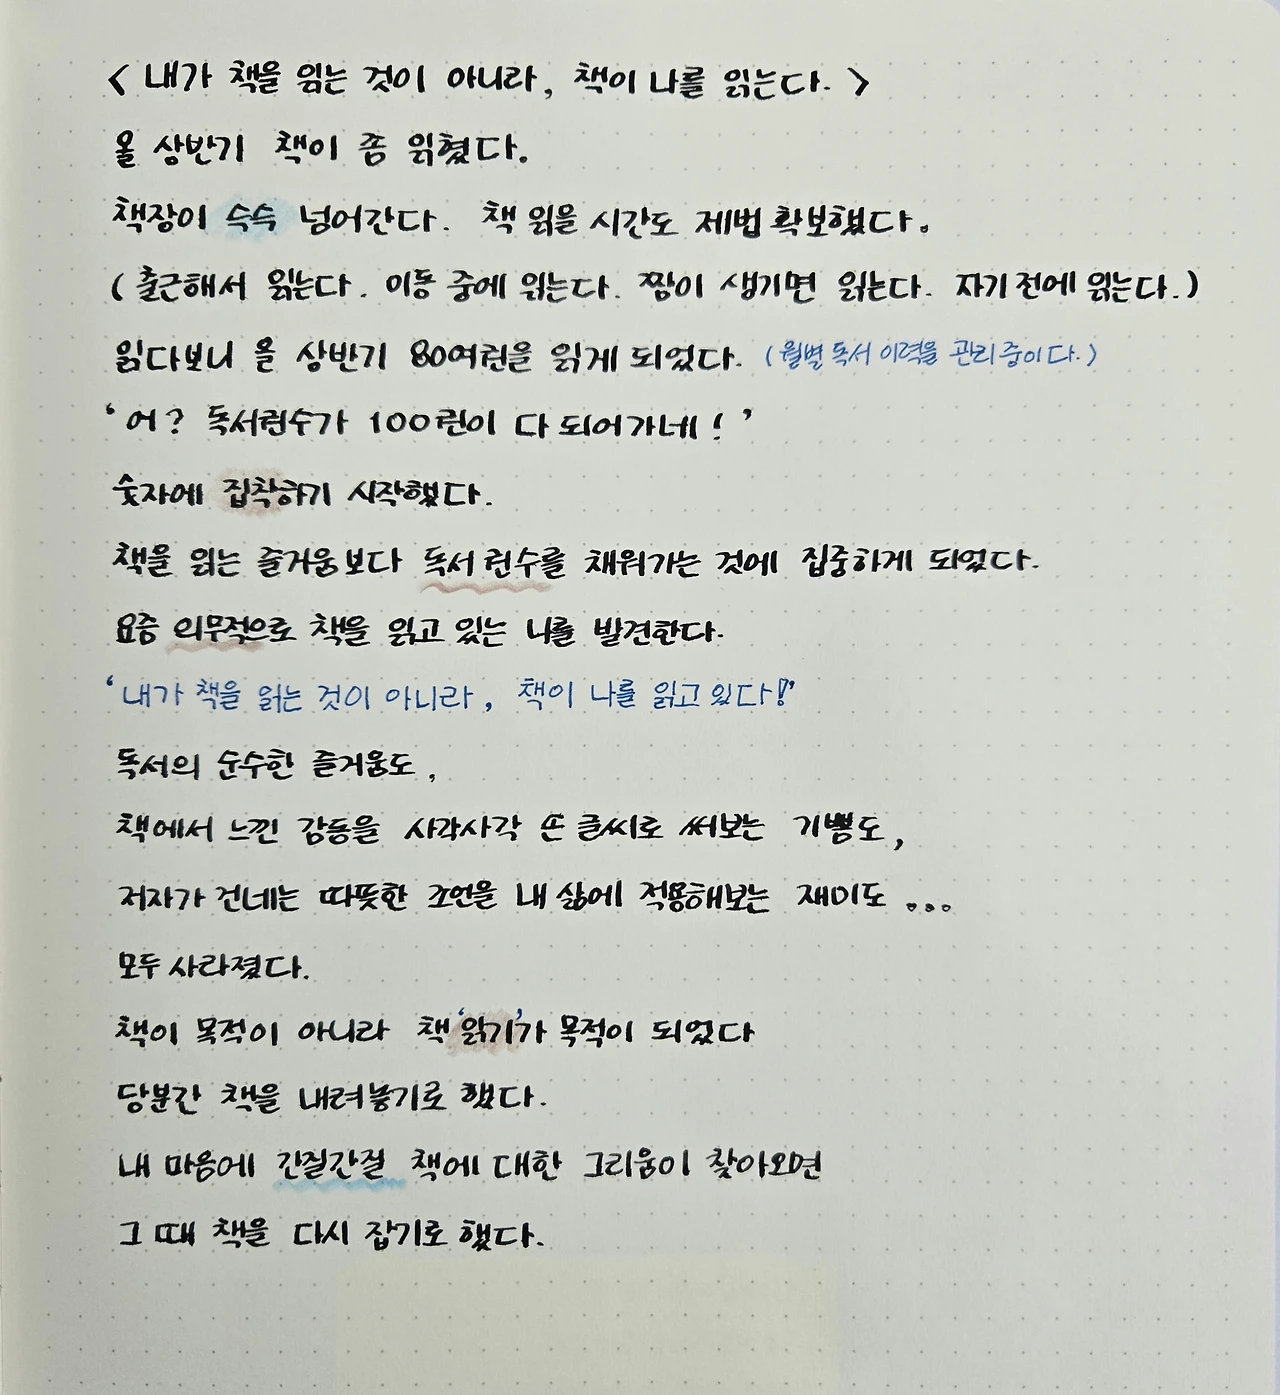 < 내가 책을 읽는 것이 아니라, 책이 나를 읽는다. >
올 상반기 책이 좀 읽혔다.
책장이 슥슥 넘어간다. 책 읽을 시간도 제법 확보했다.
( 출근해서 읽는다. 이동 중에 읽는다. 짬이 생기면 읽는다. 자기 전에 읽는다.)
읽다보니 올 상반기 80여권을 읽게 되었다. (월별 독서 이력을 관리중이다.)
'어? 독서권수가 100권이 다 되어가네! '
숫자에 집착하기 시작했다.
책을 읽는 즐거움보다 독서 권수를 채워가는 것에 집중하게 되었다.
요즘 의무적으로 책을 읽고 있는 나를 발견한다.
'내가 책을 읽는 것이 아니라, 책이 나를 읽고 있다!'
독서의 순수한 즐거움도,
책에서 느낀 감동을 사각사각 손 글씨로 써보는 기쁨도,
저자가 건네는 따뜻한 조언을 내 삶에 적용해보는 재미도 ...
모두 사라졌다.
책이 목적이 아니라 책 '읽기'가 목적이 되었다
당분간 책을 내려놓기로 했다.
내 마음에 간질간질 책에 대한 그리움이 찾아오면
그 때 책을 다시 잡기로 했다.